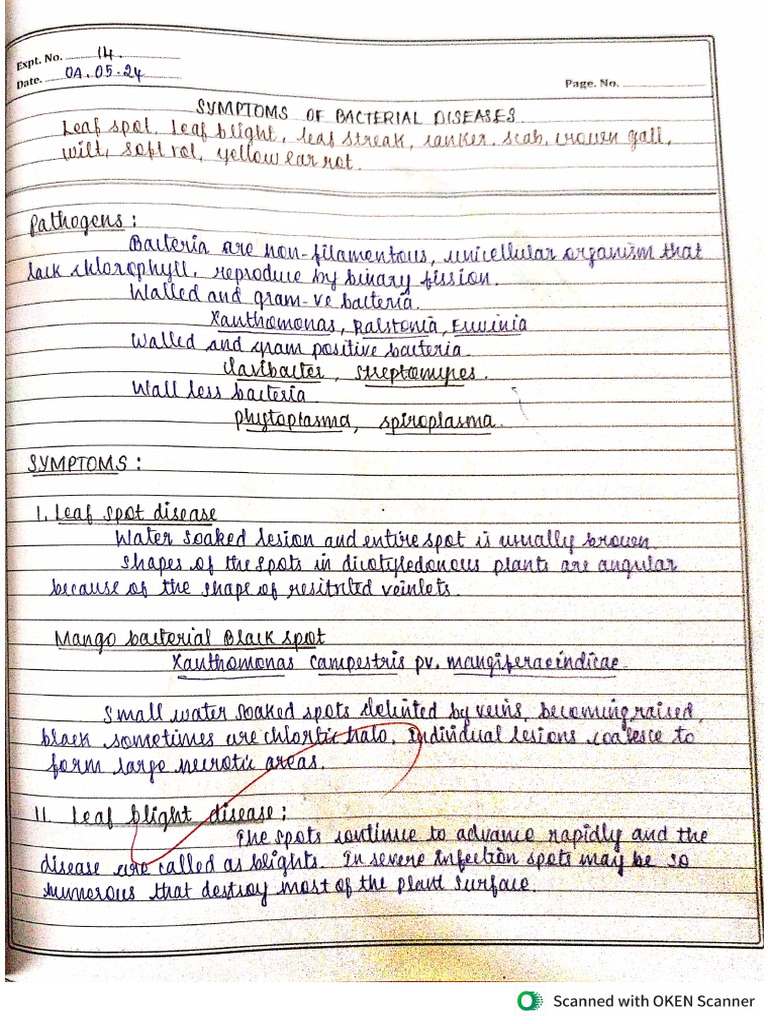 Expt. No. 14.
Date. 0A.05.24
Page. No.
SYMPTOMS OF BACTERIAL DISEASES.
Leaf spot, leaf blight, leaf streak, canker, scab, crown gall,
wilt, soft rot, yellow ear rot.
Pathogens :
Bacteria are non-filamentous, unicellular organism that
lack chlorophyll, reproduce by binary fission.
Walled and gram-ve bacteria.
Xanthomonas, Ralstonia, Erwinia
Walled and gram positive bacteria.
Clavibacter, Streptomyces.
Wall less bacteria
phytoplasma, spiroplasma.
SYMPTOMS :
I. Leaf spot disease
Water soaked lesion and entire spot is usually brown
shapes of the spots in dicotyledonous plants are angular
because of the shape of veinlets.
Mango bacterial Black spot
Xanthomonas campestris pv. mangiferaeindicae.
Small water soaked spots by veins, becoming raised,
black sometimes are halo, individual lesions coalesce to
form large necrotic areas.
II. Leaf blight disease :
The spots continue to advance rapidly and the
disease are called as blights. In severe infection spots may be so
numerous that destroy most of the plant surface.
Scanned with OKEN Scanner